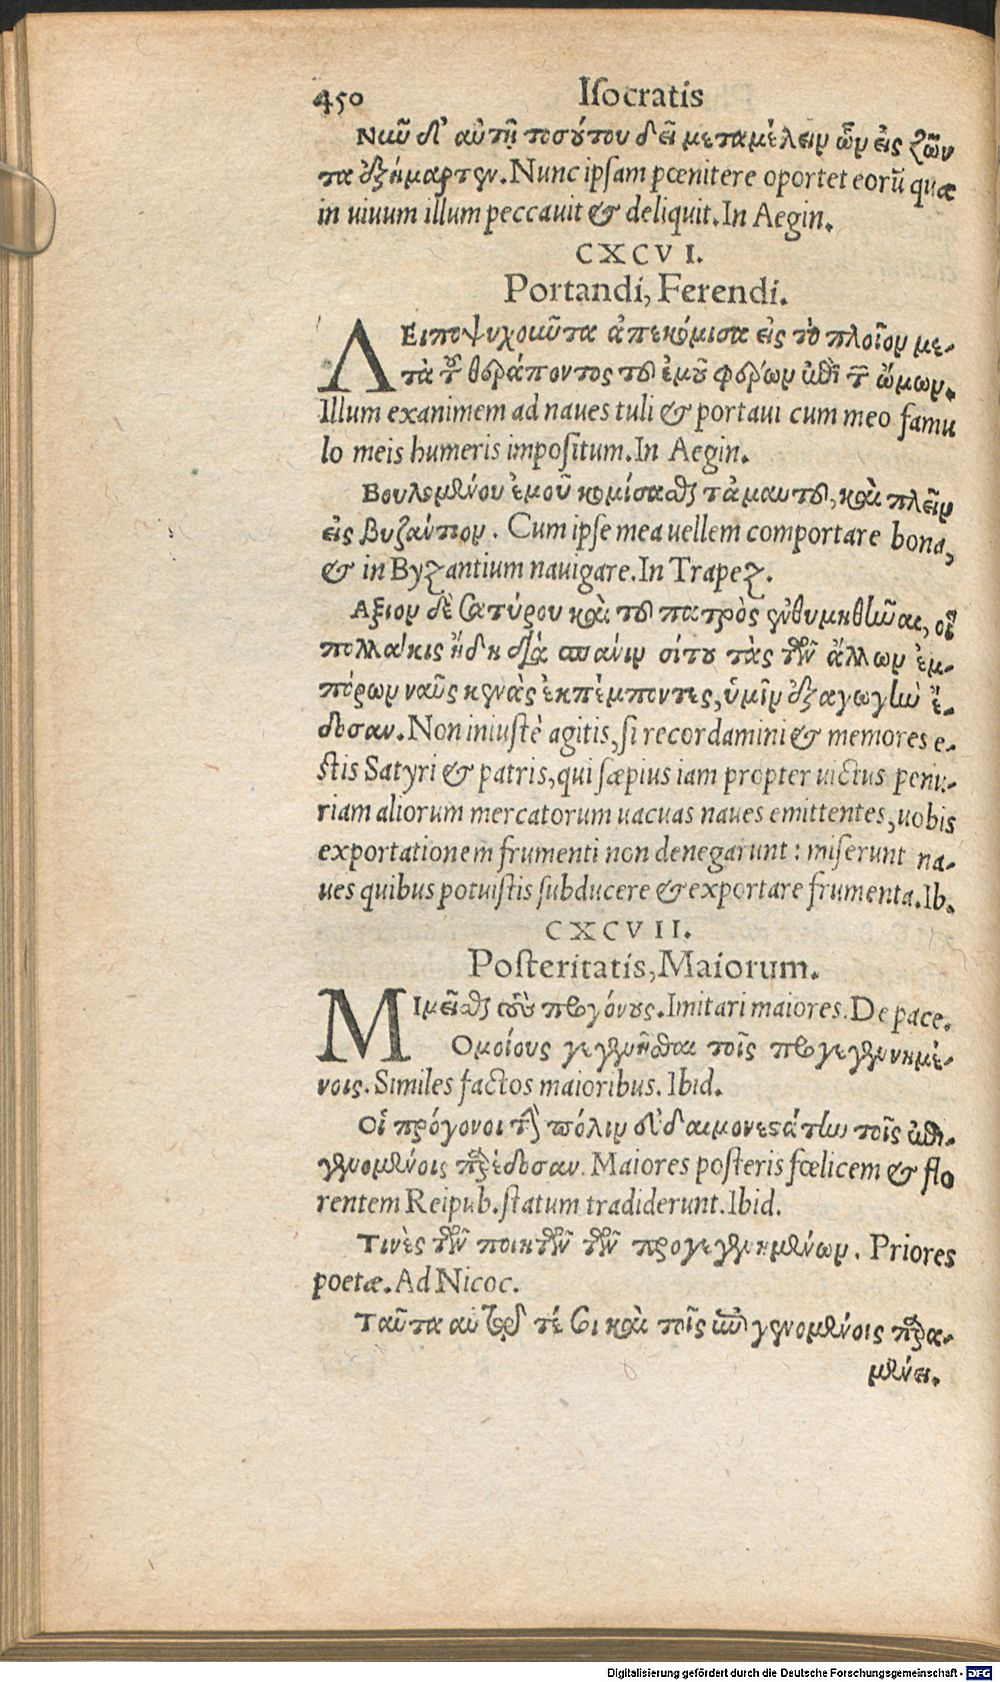 450 Isocratis
Νῦν δ' αὐτῇ τοσούτου δεῖ μεταμέλειν ὧν εἰς ζῶν
τα ἐξήμαρτεν. Nunc ipsam pœnitere oportet eorũ quæ
in uiuum illum peccauit & deliquit. In Aegin.
CXCVI.
Portandi, Ferendi.
ΛΕιποψυχοῦντα ἀπεκόμισα εἰς τὸ πλοῖον με-
τὰ τοῦ θεράποντος τοῦ ἐμοῦ φέρων ἐπὶ τῶν ὤμων.
Illum exanimem ad naues tuli & portaui cum meo famu
lo meis humeris impositum. In Aegin.
Βουλομένου ἐμοῦ κομίσασθαι τἀμαυτοῦ, καὶ πλεῖν
εἰς Βυζάντιον. Cum ipse mea uellem comportare bona,
& in Byzantium nauigare. In Trapez.
Αξιον δὲ Σατύρου καὶ τοῦ πατρὸς ἐνθυμηθῆναι, οἳ
πολλάκις ἤδη διὰ σπάνιν σίτου τὰς τῶν ἄλλων ἐμ-
πόρων ναῦς κενὰς ἐκπέμποντες, ὑμῖν ἐξαγωγὴν ἔ-
δοσαν. Non iniustè agitis, si recordamini & memores e-
stis Satyri & patris, qui sæpius iam propter uictus penu-
riam aliorum mercatorum uacuas naues emittentes, uobis
exportationem frumenti non denegarunt: miserunt na-
ues quibus potuistis subducere & exportare frumenta. Ib.
CXCVII.
Posteritatis, Maiorum.
ΜΙμεῖσθαι τοὺς προγόνους. Imitari maiores. De pace.
Ομοίους γεγενῆσθαι τοῖς προγεγενημέ-
νοις. Similes factos maioribus. Ibid.
Οἱ πρόγονοι τὴν πόλιν εὐδαιμονεστάτην τοῖς ἐπι-
γενομένοις παρέδοσαν. Maiores posteris fœlicem & flo
rentem Reipub. statum tradiderunt. Ibid.
Τινὲς τῶν ποιητῶν τῶν προγεγενημένων. Priores
poetæ. Ad Nicoc.
Ταῦτα αὐτοῖς τέ σοι καὶ τοῖς γενομένοις παρα-
μένει.
Digitalisierung gefördert durch die Deutsche Forschungsgemeinschaft - DFG